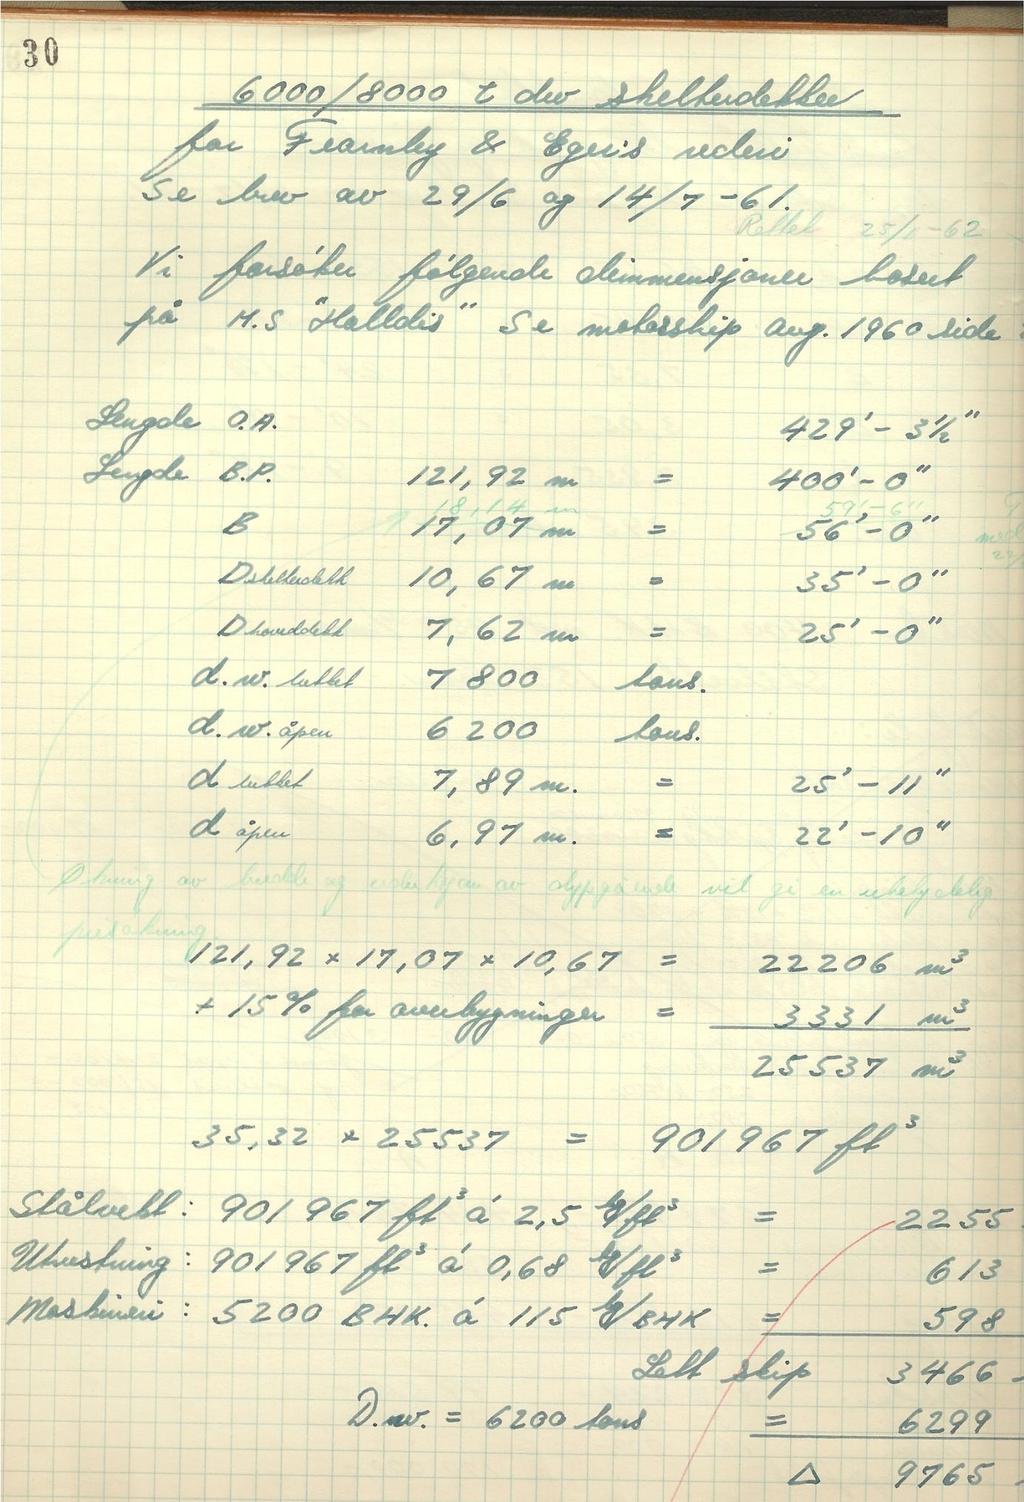 30
6000/8000 t dw shelterdekker
for Fearnley & Egers rederi
Se brev av 29/6 og 14/7 -61.
Rettet 25/1-62
Vi forsøker følgende dimmensjoner basert
på M.S "Halldis" Se motorship aug. 1960 side
Lengde O.A. 429' - 3½"
Lengde B.P. 121,92 m = 400' - 0"
18,14 m 59'-6"
B 17,07 m = 56' - 0"
D shelterdekk 10,67 m = 35' - 0"
D hoveddekk 7,62 m = 25' - 0"
d.w. lukket 7 800 tons.
d.w. åpen 6 200 tons.
d lukket 7,89 m. = 25' - 11"
d åpen 6,97 m. = 22' - 10"
Økning av bredde og av dypgående vil gi en ubetydelig
121,92 × 17,07 × 10,67 = 22206 m³
+ 15% for overbygninger = 3331 m³
25537 m³
35,32 × 25537 = 901967 ft³
Stålvekt: 901967 ft³ á 2,5 kg/ft³ = 2255
Utrustning: 901967 ft³ á 0,68 kg/ft³ = 613
Maskineri: 5200 BHK. á 115 kg/BHK = 598
Lett skip 3466 -
D.w. = 6200 tons = 6299
Δ 9765 -